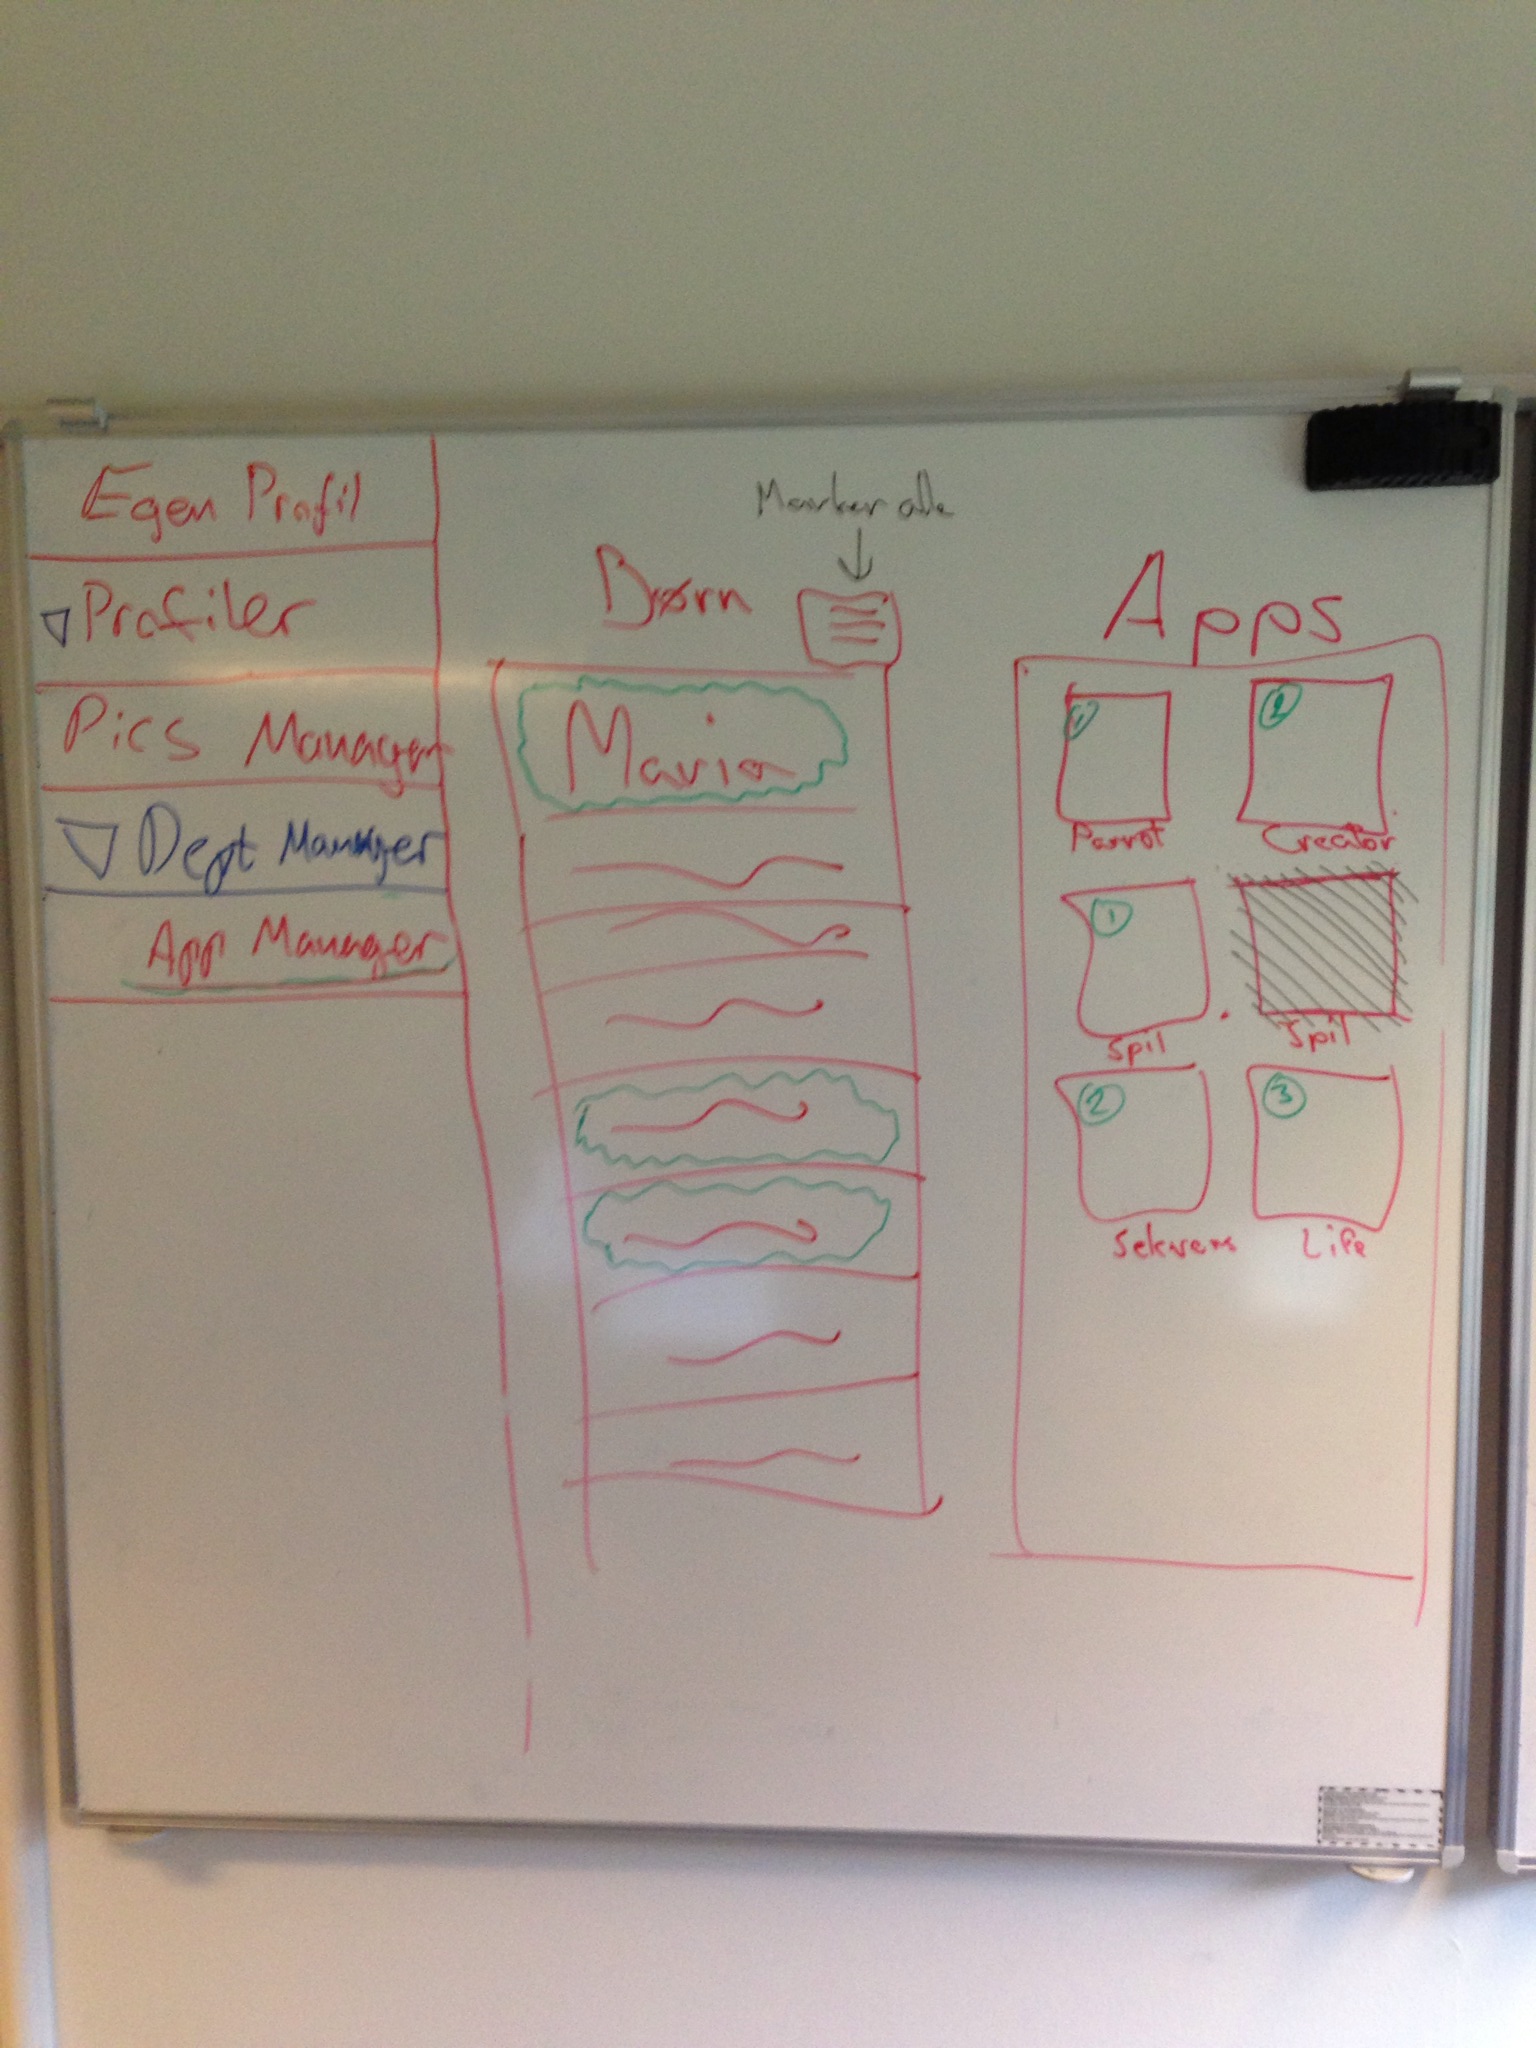 Egen Profil
Profiler
Pics Manager
Dept Manager
App Manager
Marker alle
Børn
Maria
Apps
1
Parrot
Creator
1
Spil
Spil
2
3
Sekvens
Life